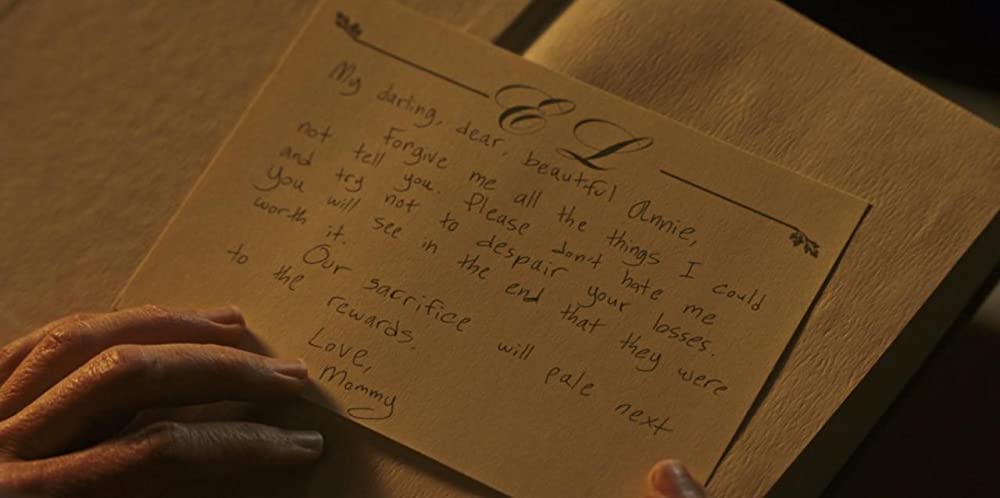 E L
My darling, dear, beautiful Annie,
Forgive me all the things I could
not tell you. Please don't hate me
and try not to despair your losses.
You will see in the end that they were
worth it.
Our sacrifice will pale next
to the rewards.
Love,
Mommy